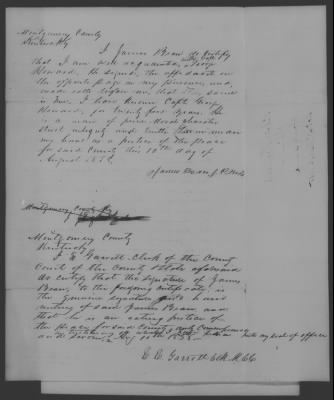 Montgomery County
Kentucky
I James Bean do certify
that I am well acquainted with Capt
Howard, He signed the affidavit on
the opposite page in my presence and
made oath before me that the same
is true. I have known Capt Geo
Howard, for twenty four years. He
is a man of pure moral character
strict integrity and truth. Given under
my hand as a justice of the peace
for said County this 10th day of
August 1838
James Bean J P M C
Montgomery County Ky
Montgomery County
Kentucky
I E Garrett Clerk of the County
Court of the County & State aforesaid
do certify that the signature of James
Bean, to the foregoing certificate, is
the genuine signature & hand
writing of said James Bean and
that he is an acting justice of
the Peace for said County duly Commissioned
and sworn, my hand & seal of office
Aug 10th 1838
E. Garrett Clk M CC